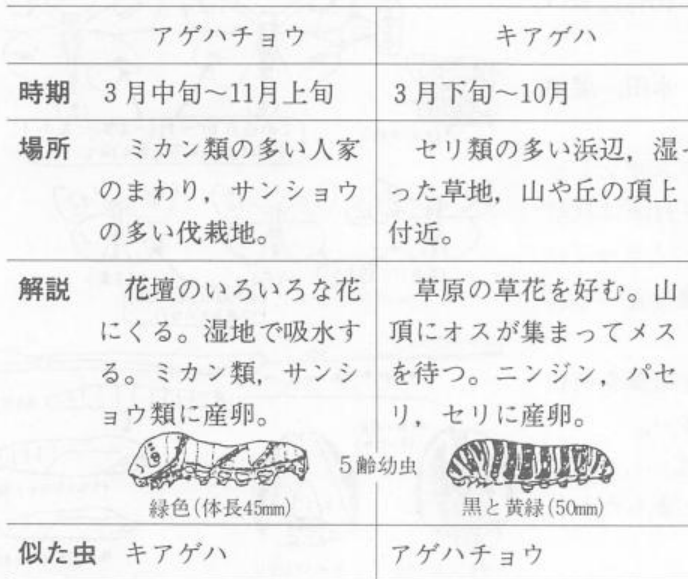 アゲハチョウ
キアゲハ
時期
3月中旬～11月上旬
3月下旬～10月
場所
ミカン類の多い人家
のまわり，サンショウ
の多い伐栽地。
セリ類の多い浜辺，湿
った草地，山や丘の頂上
付近。
解説
花壇のいろいろな花
にくる。湿地で吸水す
る。ミカン類，サンシ
ョウ類に産卵。
草原の草花を好む。山
頂にオスが集まってメス
を待つ。ニンジン，パセ
リ，セリに産卵。
5齢幼虫
緑色(体長45mm)
黒と黄緑(50mm)
似た虫
キアゲハ
アゲハチョウ